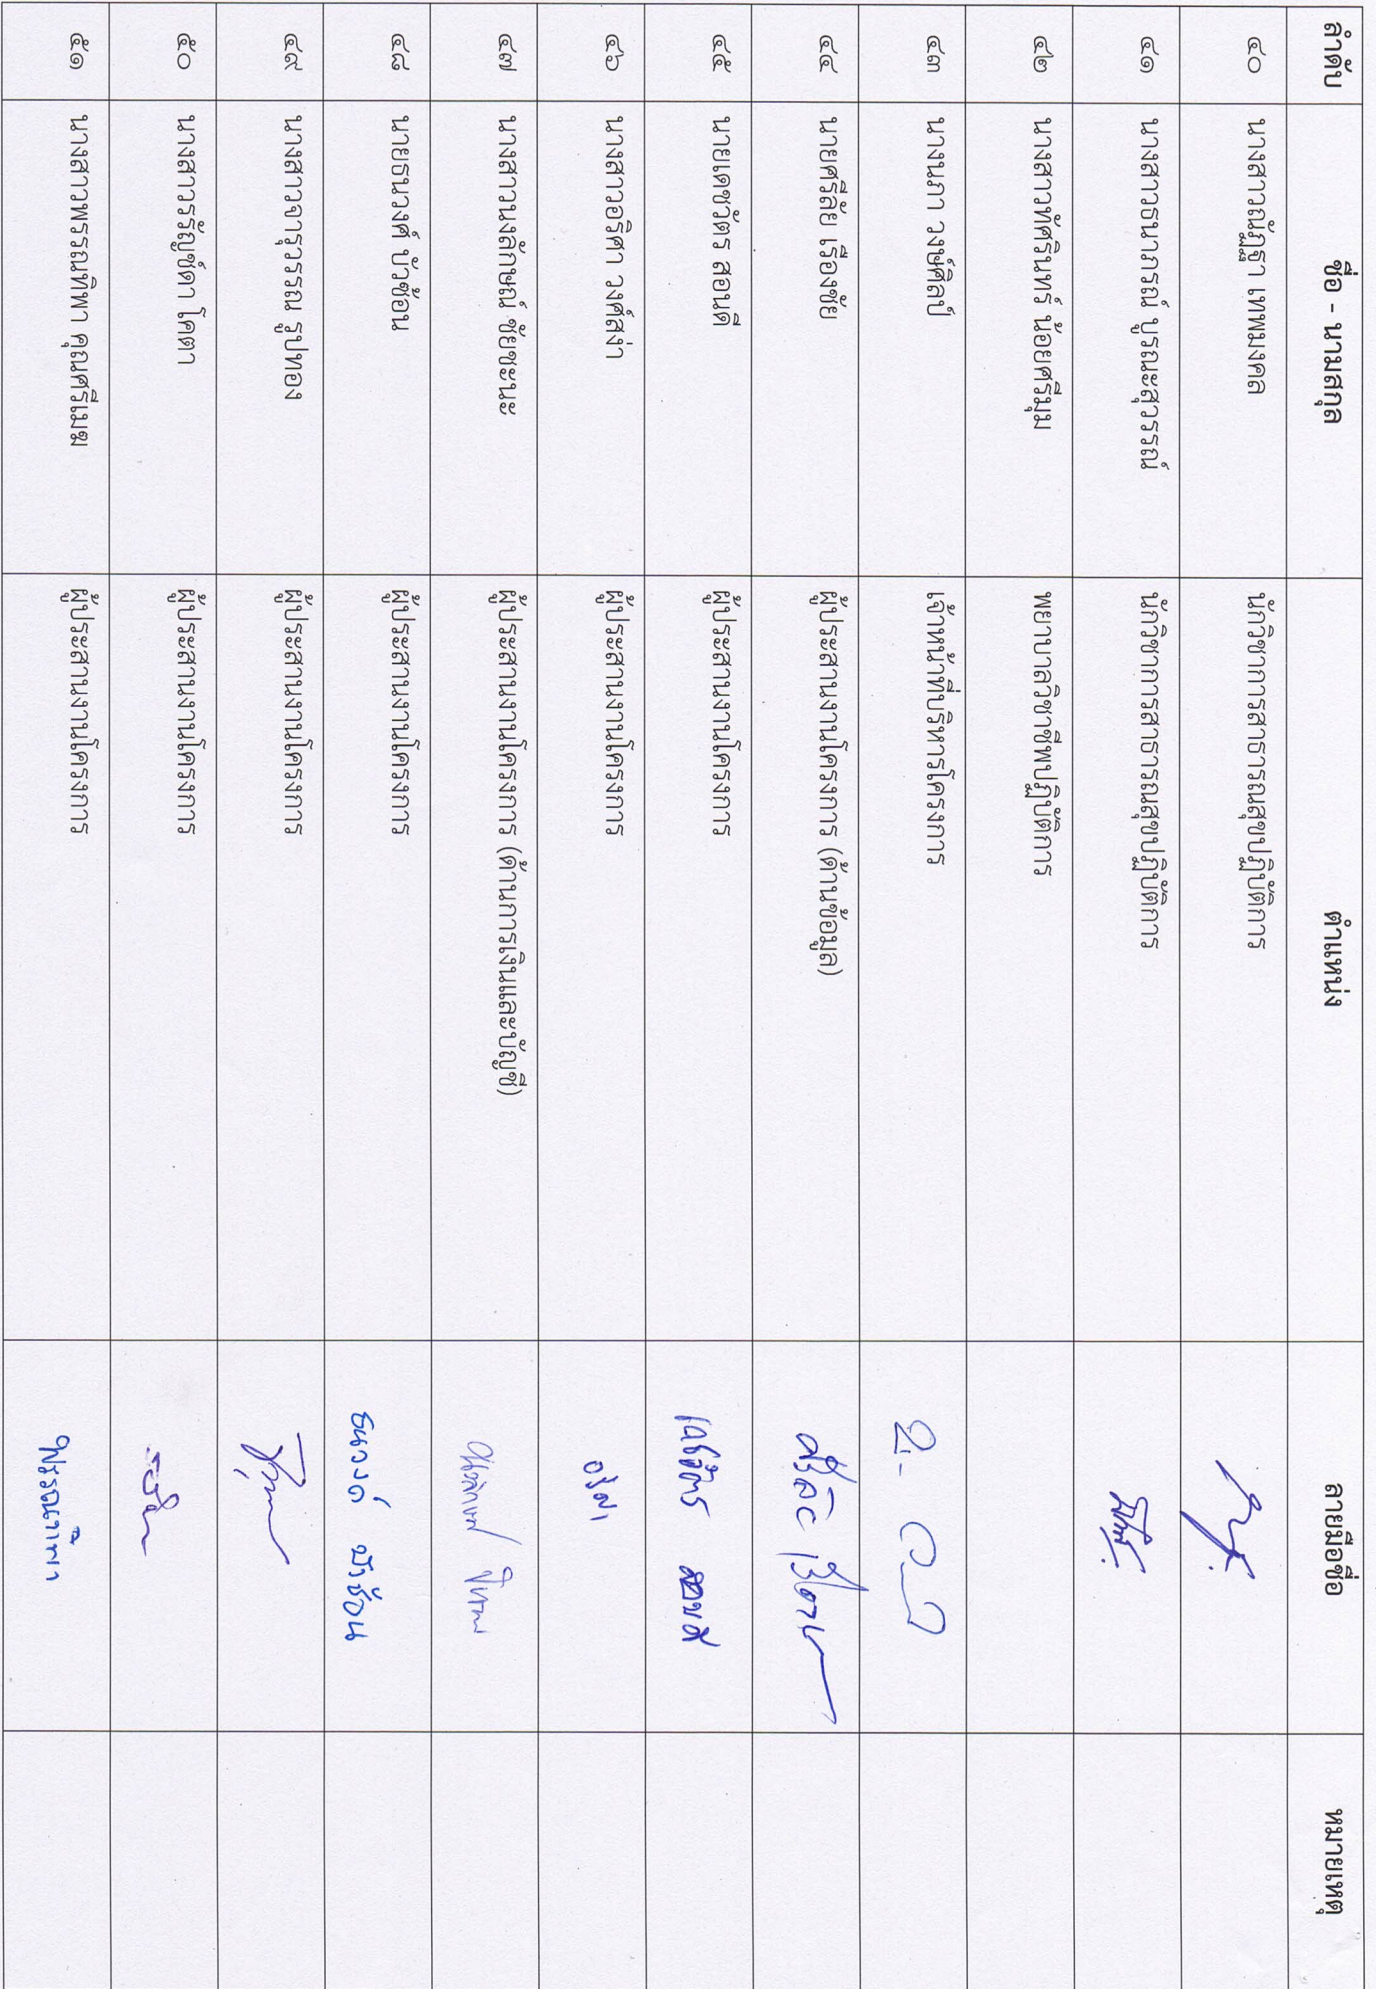 ลำดับ ชื่อ - นามสกุล ตำแหน่ง ลายมือชื่อ หมายเหตุ
๔๐ นางสาวณัฏฐา เทพมงคล นักวิชาการสาธารณสุขปฏิบัติการ
๔๑ นางสาวธนาภรณ์ บูรณะสุวรรณ์ นักวิชาการสาธารณสุขปฏิบัติการ
๔๒ นางสาวทัศรินทร์ น้อยศรีมุม พยาบาลวิชาชีพปฏิบัติการ
๔๓ นางนภา วงษ์ศิลป์ เจ้าหน้าที่บริหารโครงการ
๔๔ นายศรีลัย เรืองชัย ผู้ประสานงานโครงการ (ด้านข้อมูล)
๔๕ นายเดชวัตร สอนดี ผู้ประสานงานโครงการ
๔๖ นางสาวอริศา วงศ์สง่า ผู้ประสานงานโครงการ อริศา
๔๗ นางสาวนงลักษณ์ ชัยชะนะ ผู้ประสานงานโครงการ (ด้านการเงินและบัญชี)
๔๘ นายธนวงศ์ บัวซ้อน ผู้ประสานงานโครงการ ธนวงศ์ บัวซ้อน
๔๙ นางสาวจารุวรรณ รูปทอง ผู้ประสานงานโครงการ
๕๐ นางสาวรรัญช์ดา โคตา ผู้ประสานงานโครงการ
๕๑ นางสาวพรรณทิพา คุณศรีเมฆ ผู้ประสานงานโครงการ พรรณทิพา